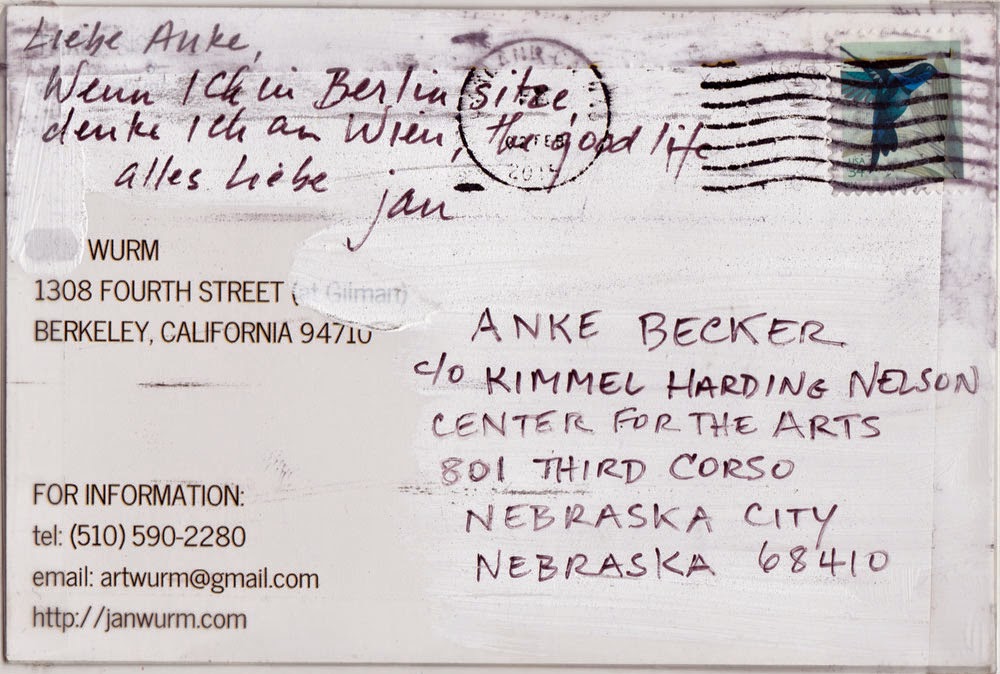 Liebe Anke,
Wenn Ich in Berlin sitze
denke Ich an Wien, the good life
alles Liebe
jan
FEB
2014
USA
34
WURM
1308 FOURTH STREET (at Gilman)
BERKELEY, CALIFORNIA 94710
ANKE BECKER
c/o KIMMEL HARDING NELSON
CENTER FOR THE ARTS
801 THIRD CORSO
NEBRASKA CITY
NEBRASKA 68410
FOR INFORMATION:
tel: (510) 590-2280
email: artwurm@gmail.com
http://janwurm.com